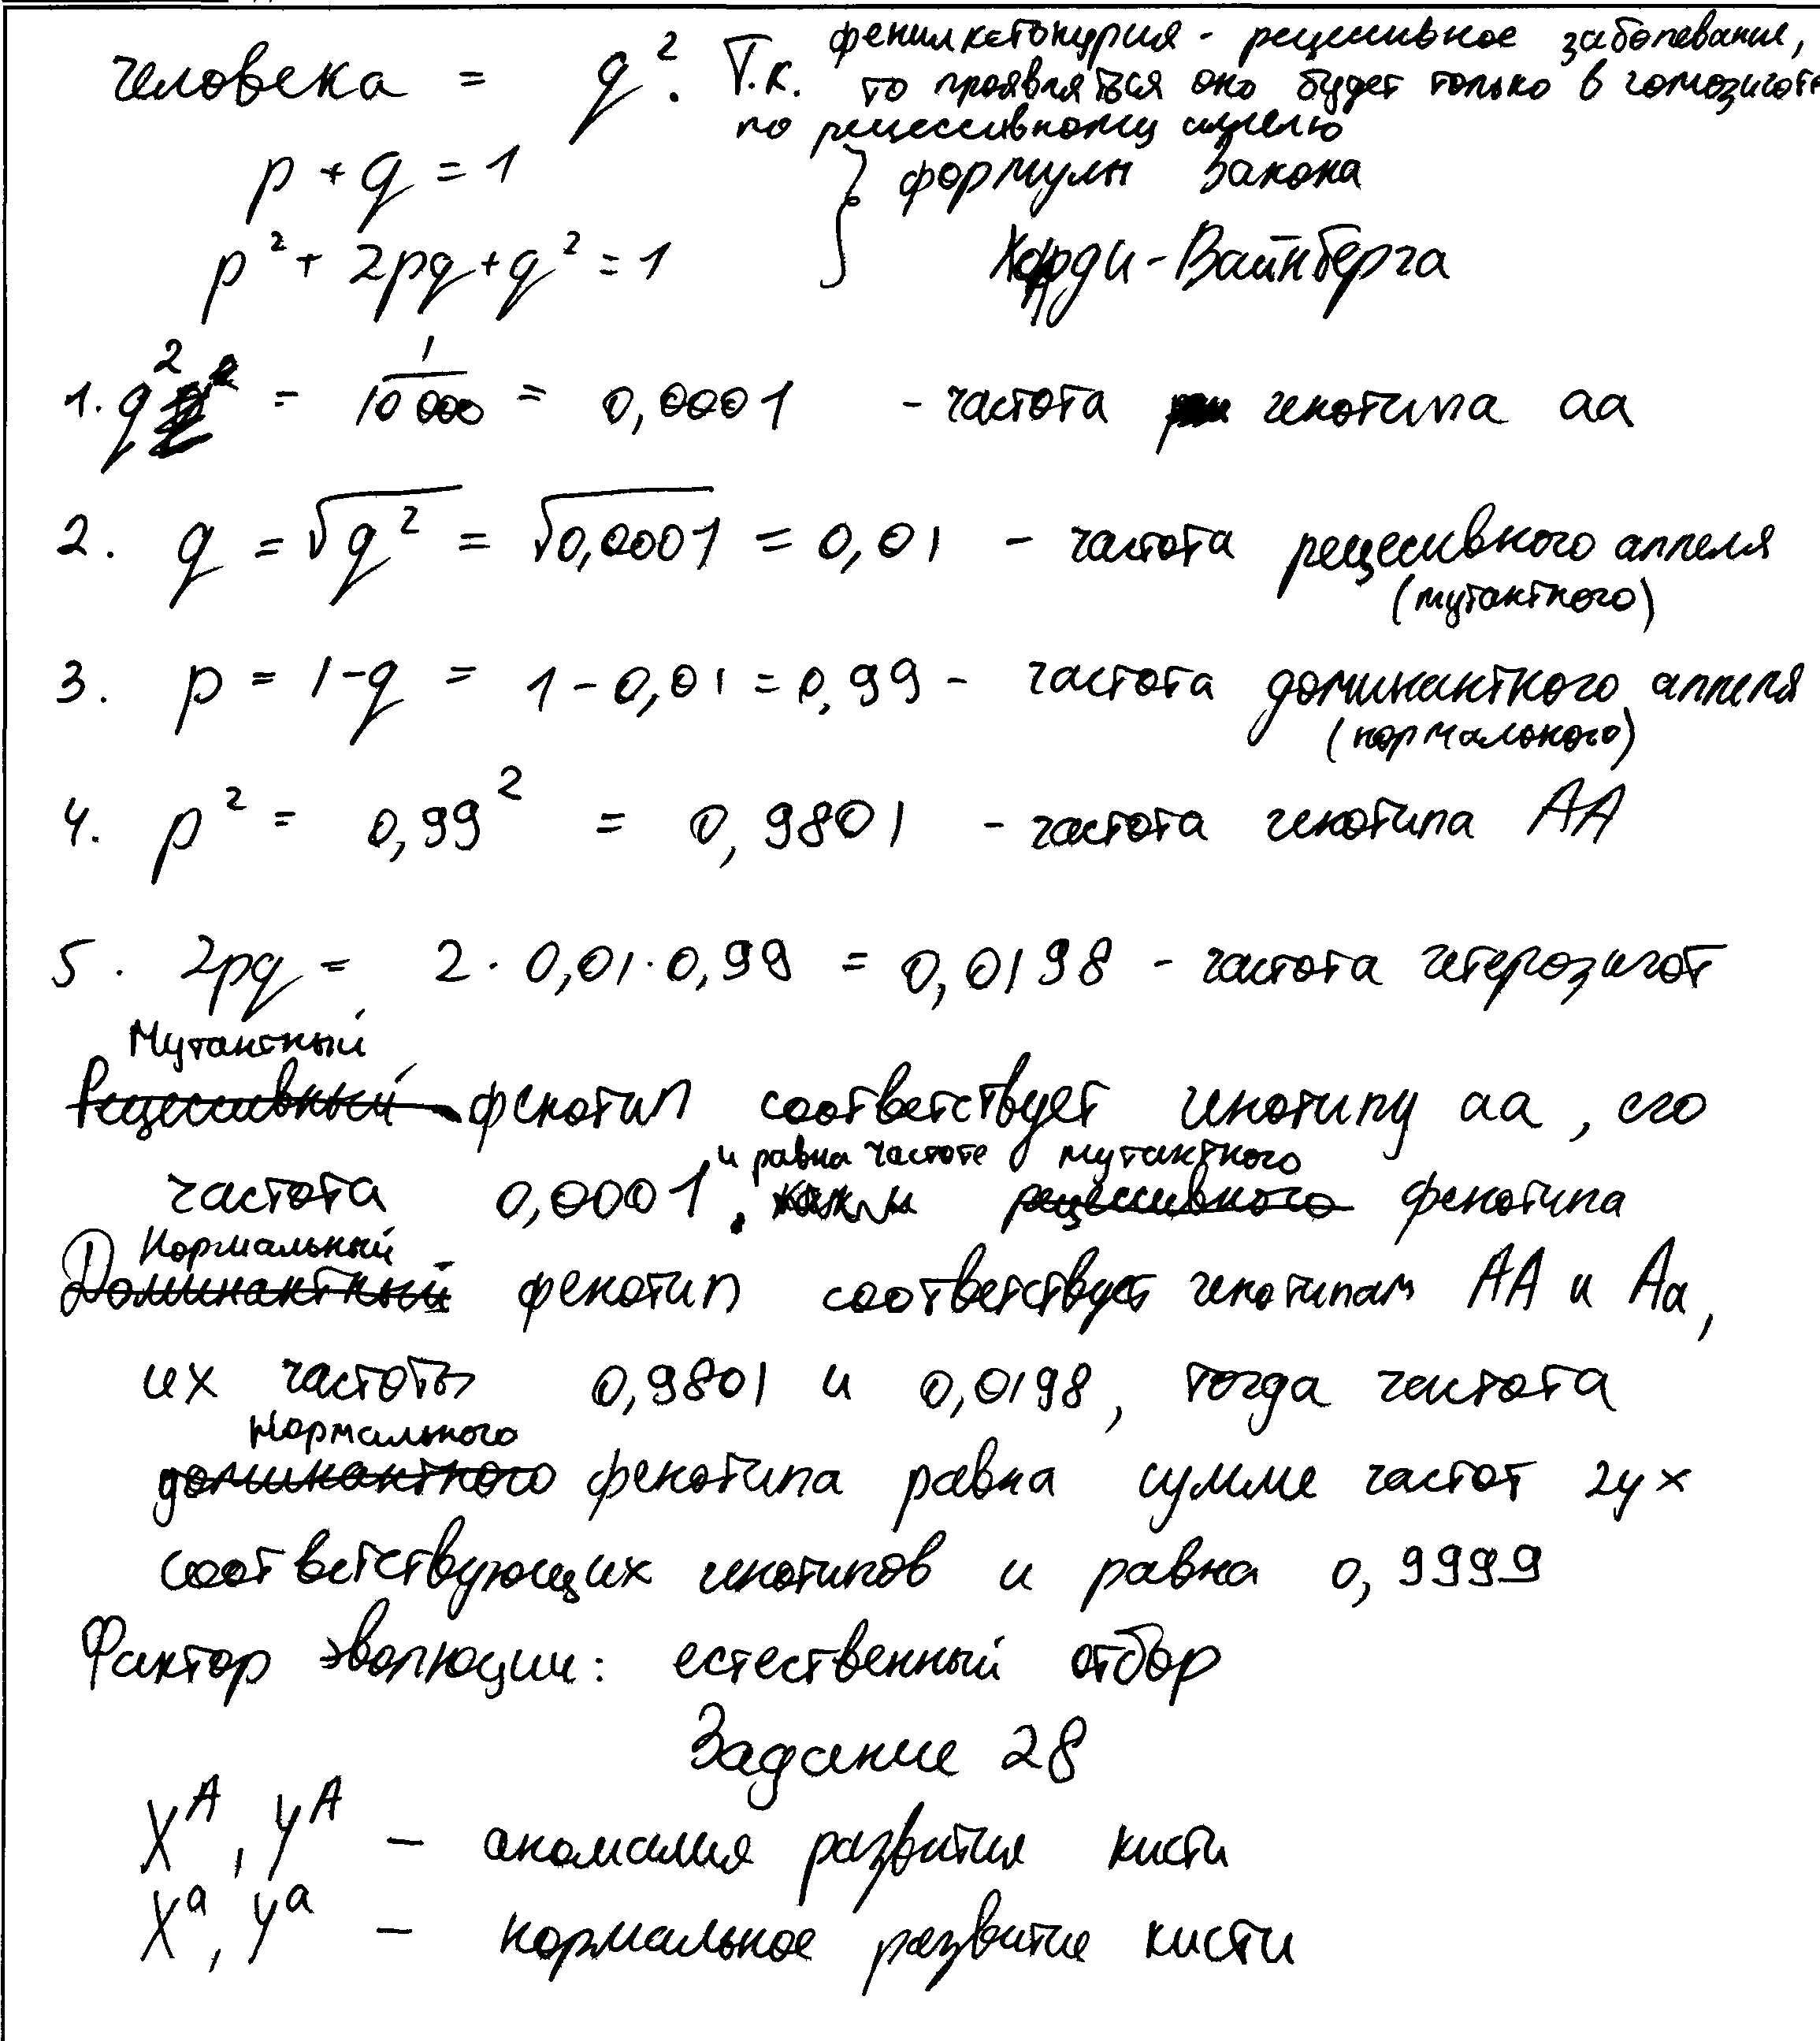 человека = q². Т.к. фенилкетонурия - рецессивное заболевание,
то проявляться оно будет только в гомозиготе
по рецессивному аллелю
p + q = 1 } формулы закона
p² + 2pq + q² = 1 Харди-Вайнберга
1. q² = 1/10 000 = 0,0001 - частота генотипа aa
2. q = √q² = √0,0001 = 0,01 - частота рецессивного аллеля
(мутантного)
3. p = 1-q = 1-0,01 = 0,99 - частота доминантного аллеля
(нормального)
4. p² = 0,99² = 0,9801 - частота генотипа AA
5. 2pq = 2·0,01·0,99 = 0,0198 - частота гетерозигот
Мутантный
Рецессивный фенотип соответствует генотипу aa, его
и равна частоте мутантного
частота 0,0001. рецессивного фенотипа
Нормальный
Доминантный фенотип соответствует генотипам AA и Aa,
их частоты 0,9801 и 0,0198, тогда частота
Нормального
доминантного фенотипа равна сумме частот 2ух
соответствующих генотипов и равна 0,9999
Фактор эволюции: естественный отбор
Задание 28
Xᴬ, Yᴬ - аномалия развития кисти
Xᵃ, Yᵃ - нормальное развитие кисти